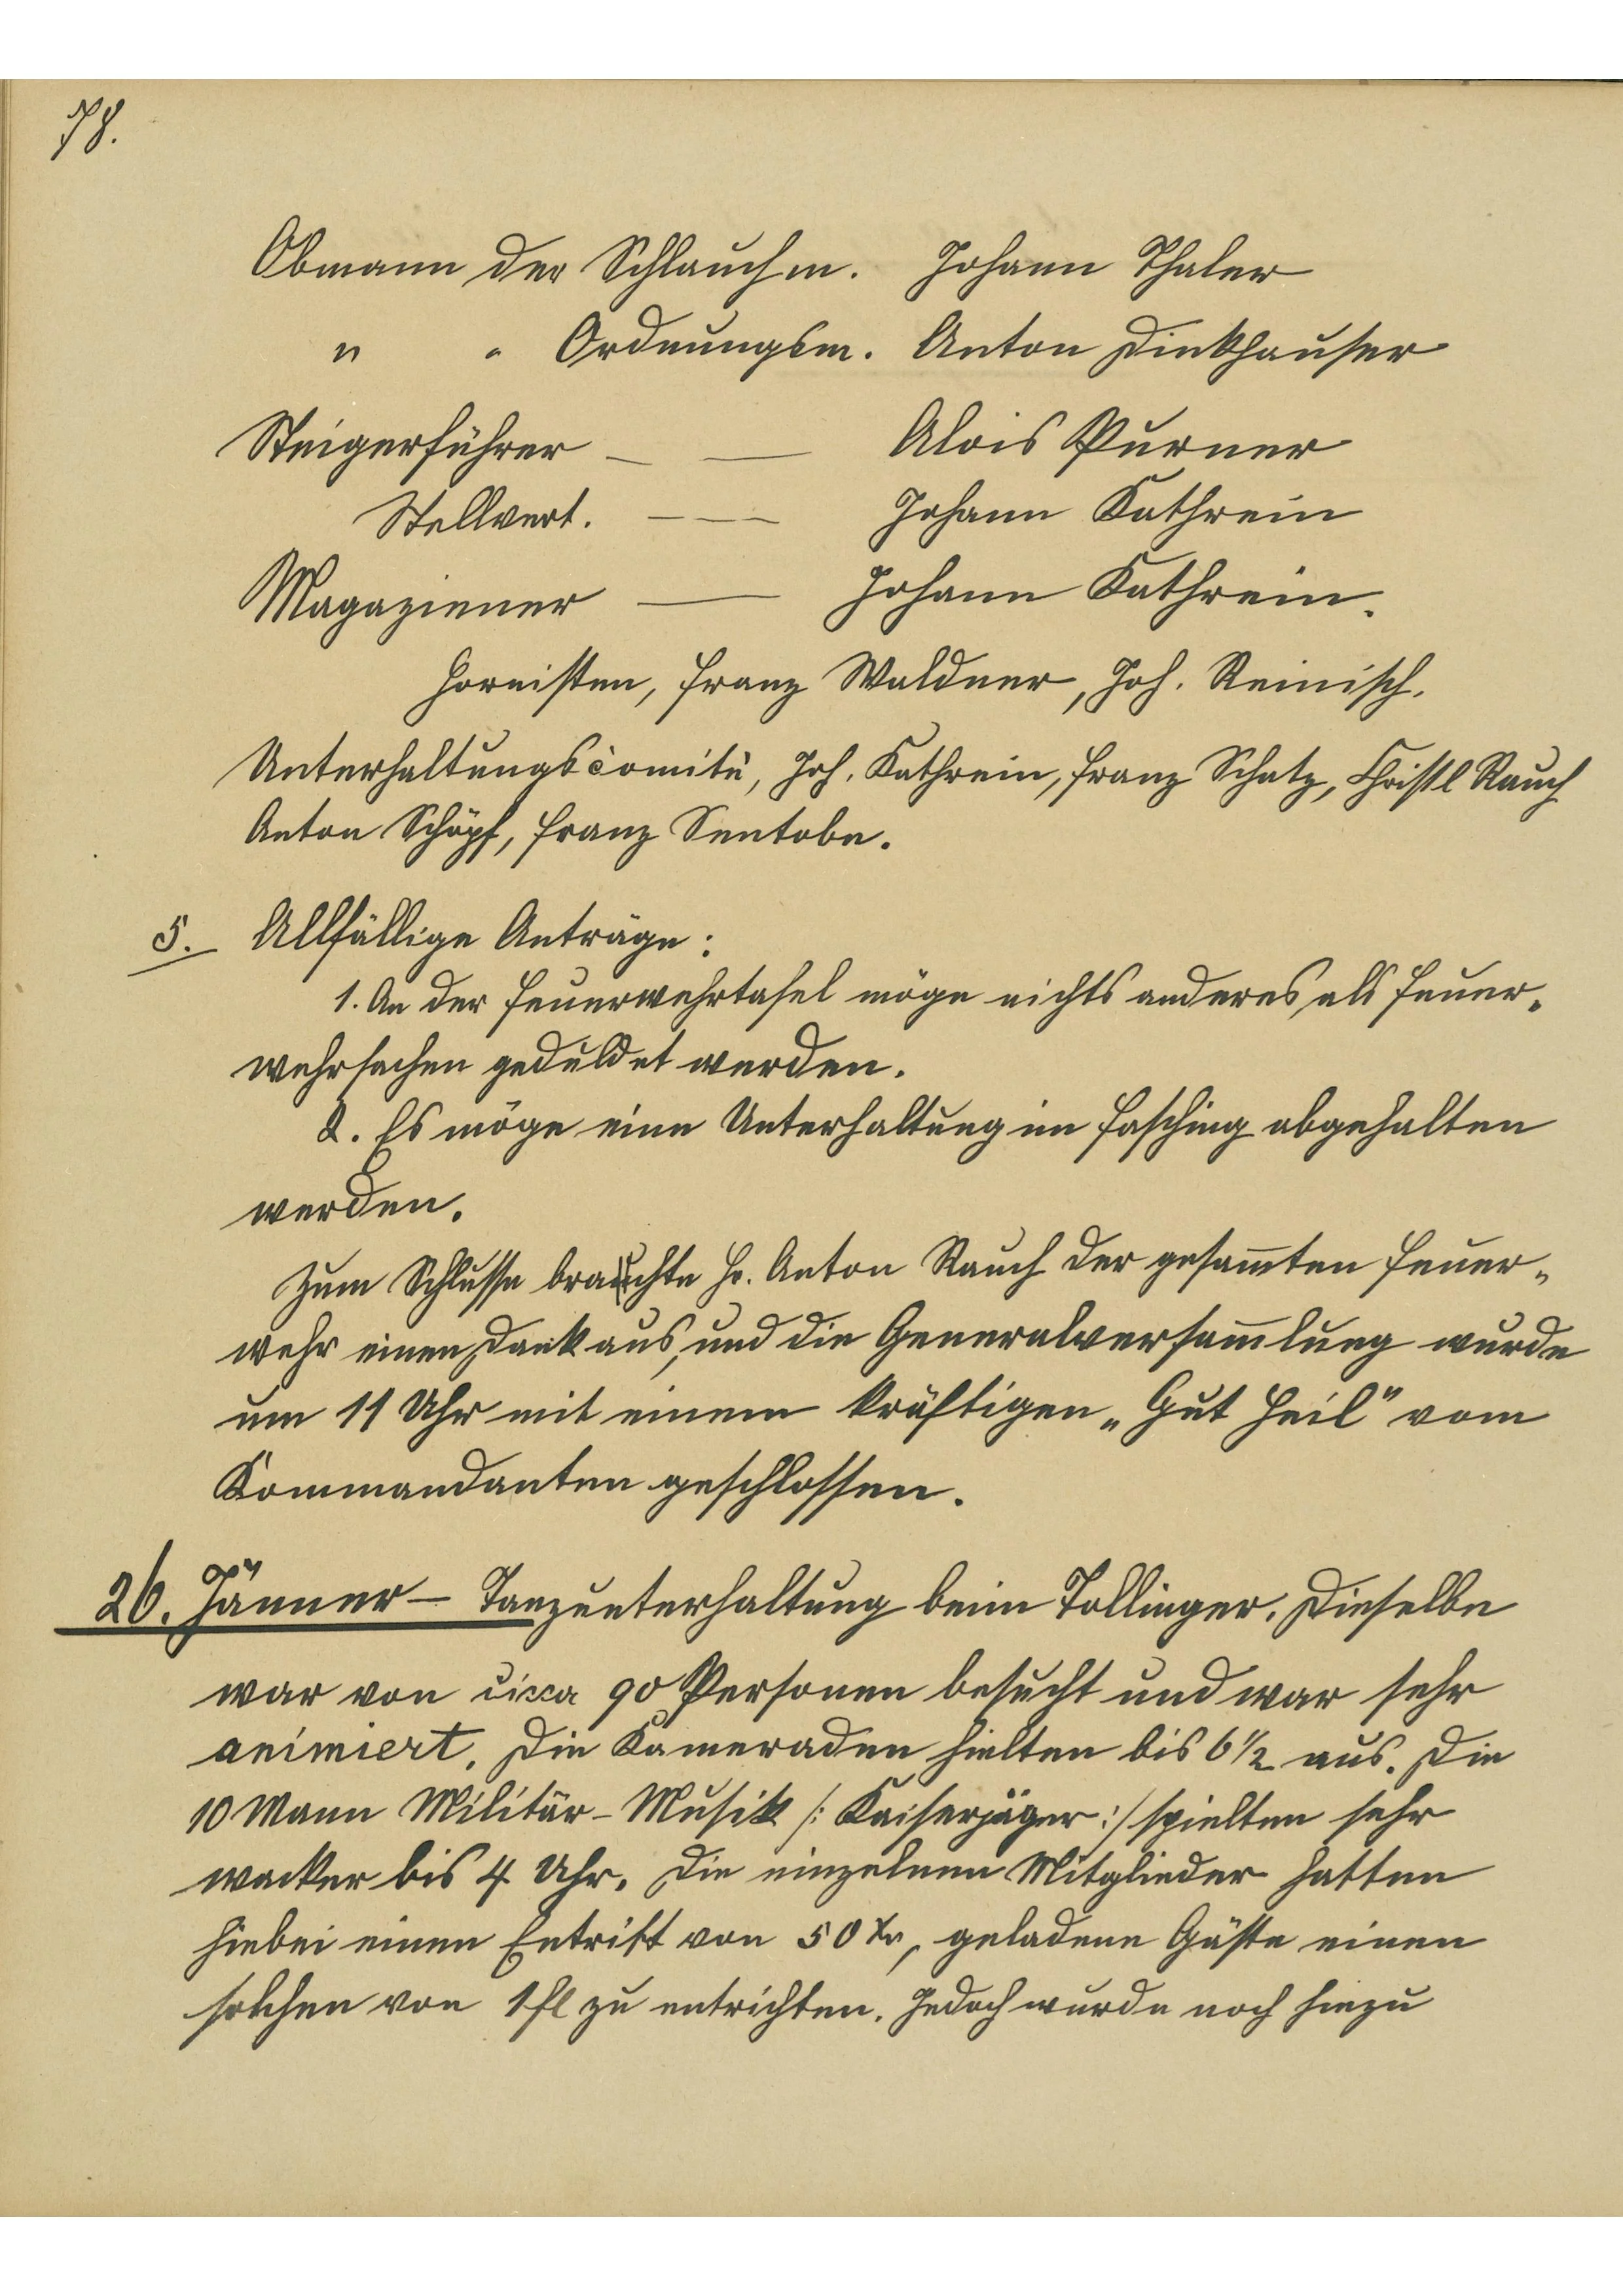 78.
Obmann der Schlauchm. Johann Thaler
" " Ordnungsm. Anton Dinkhauser
Steigerführer — — Alois Purner
Stellvert. — — Johann Kathrein
Magaziener — Johann Kathrein.
Hornisten, Franz Waldner, Joh. Reinisch.
Unterhaltungscomité, Joh. Kathrein, Franz Schatz, Christl Rauch
Anton Schöpf, Franz Sentobe.
5. Allfällige Anträge:
1. An der Feuerwehrtafel möge nichts anderes als Feuer-
wehrsachen geduldet werden.
2. Es möge eine Unterhaltung im Fasching abgehalten
werden.
Zum Schlusse brachte Hr. Anton Rauch der gesam̅ten Feuer-
wehr einen Dank aus, und die Generalversam̅lung wurde
um 11 Uhr mit einem kräftigen „Gut Heil" vom
Kommandanten geschlossen.
26. Jänner — Tanzunterhaltung beim Tollinger. Dieselbe
war von circa 90 Personen besucht und war sehr
animiert. Die Kameraden hielten bis 6 1/2 aus. Die
10 Mann Militär-Musik /: Kaiserjäger :/ spielten sehr
wacker bis 4 Uhr. Die einzelnen Mitglieder hatten
hiebei einen Entritt von 50 Xr, geladene Gäste einen
solchen von 1 fl zu entrichten. Jedoch wurde noch hinzu